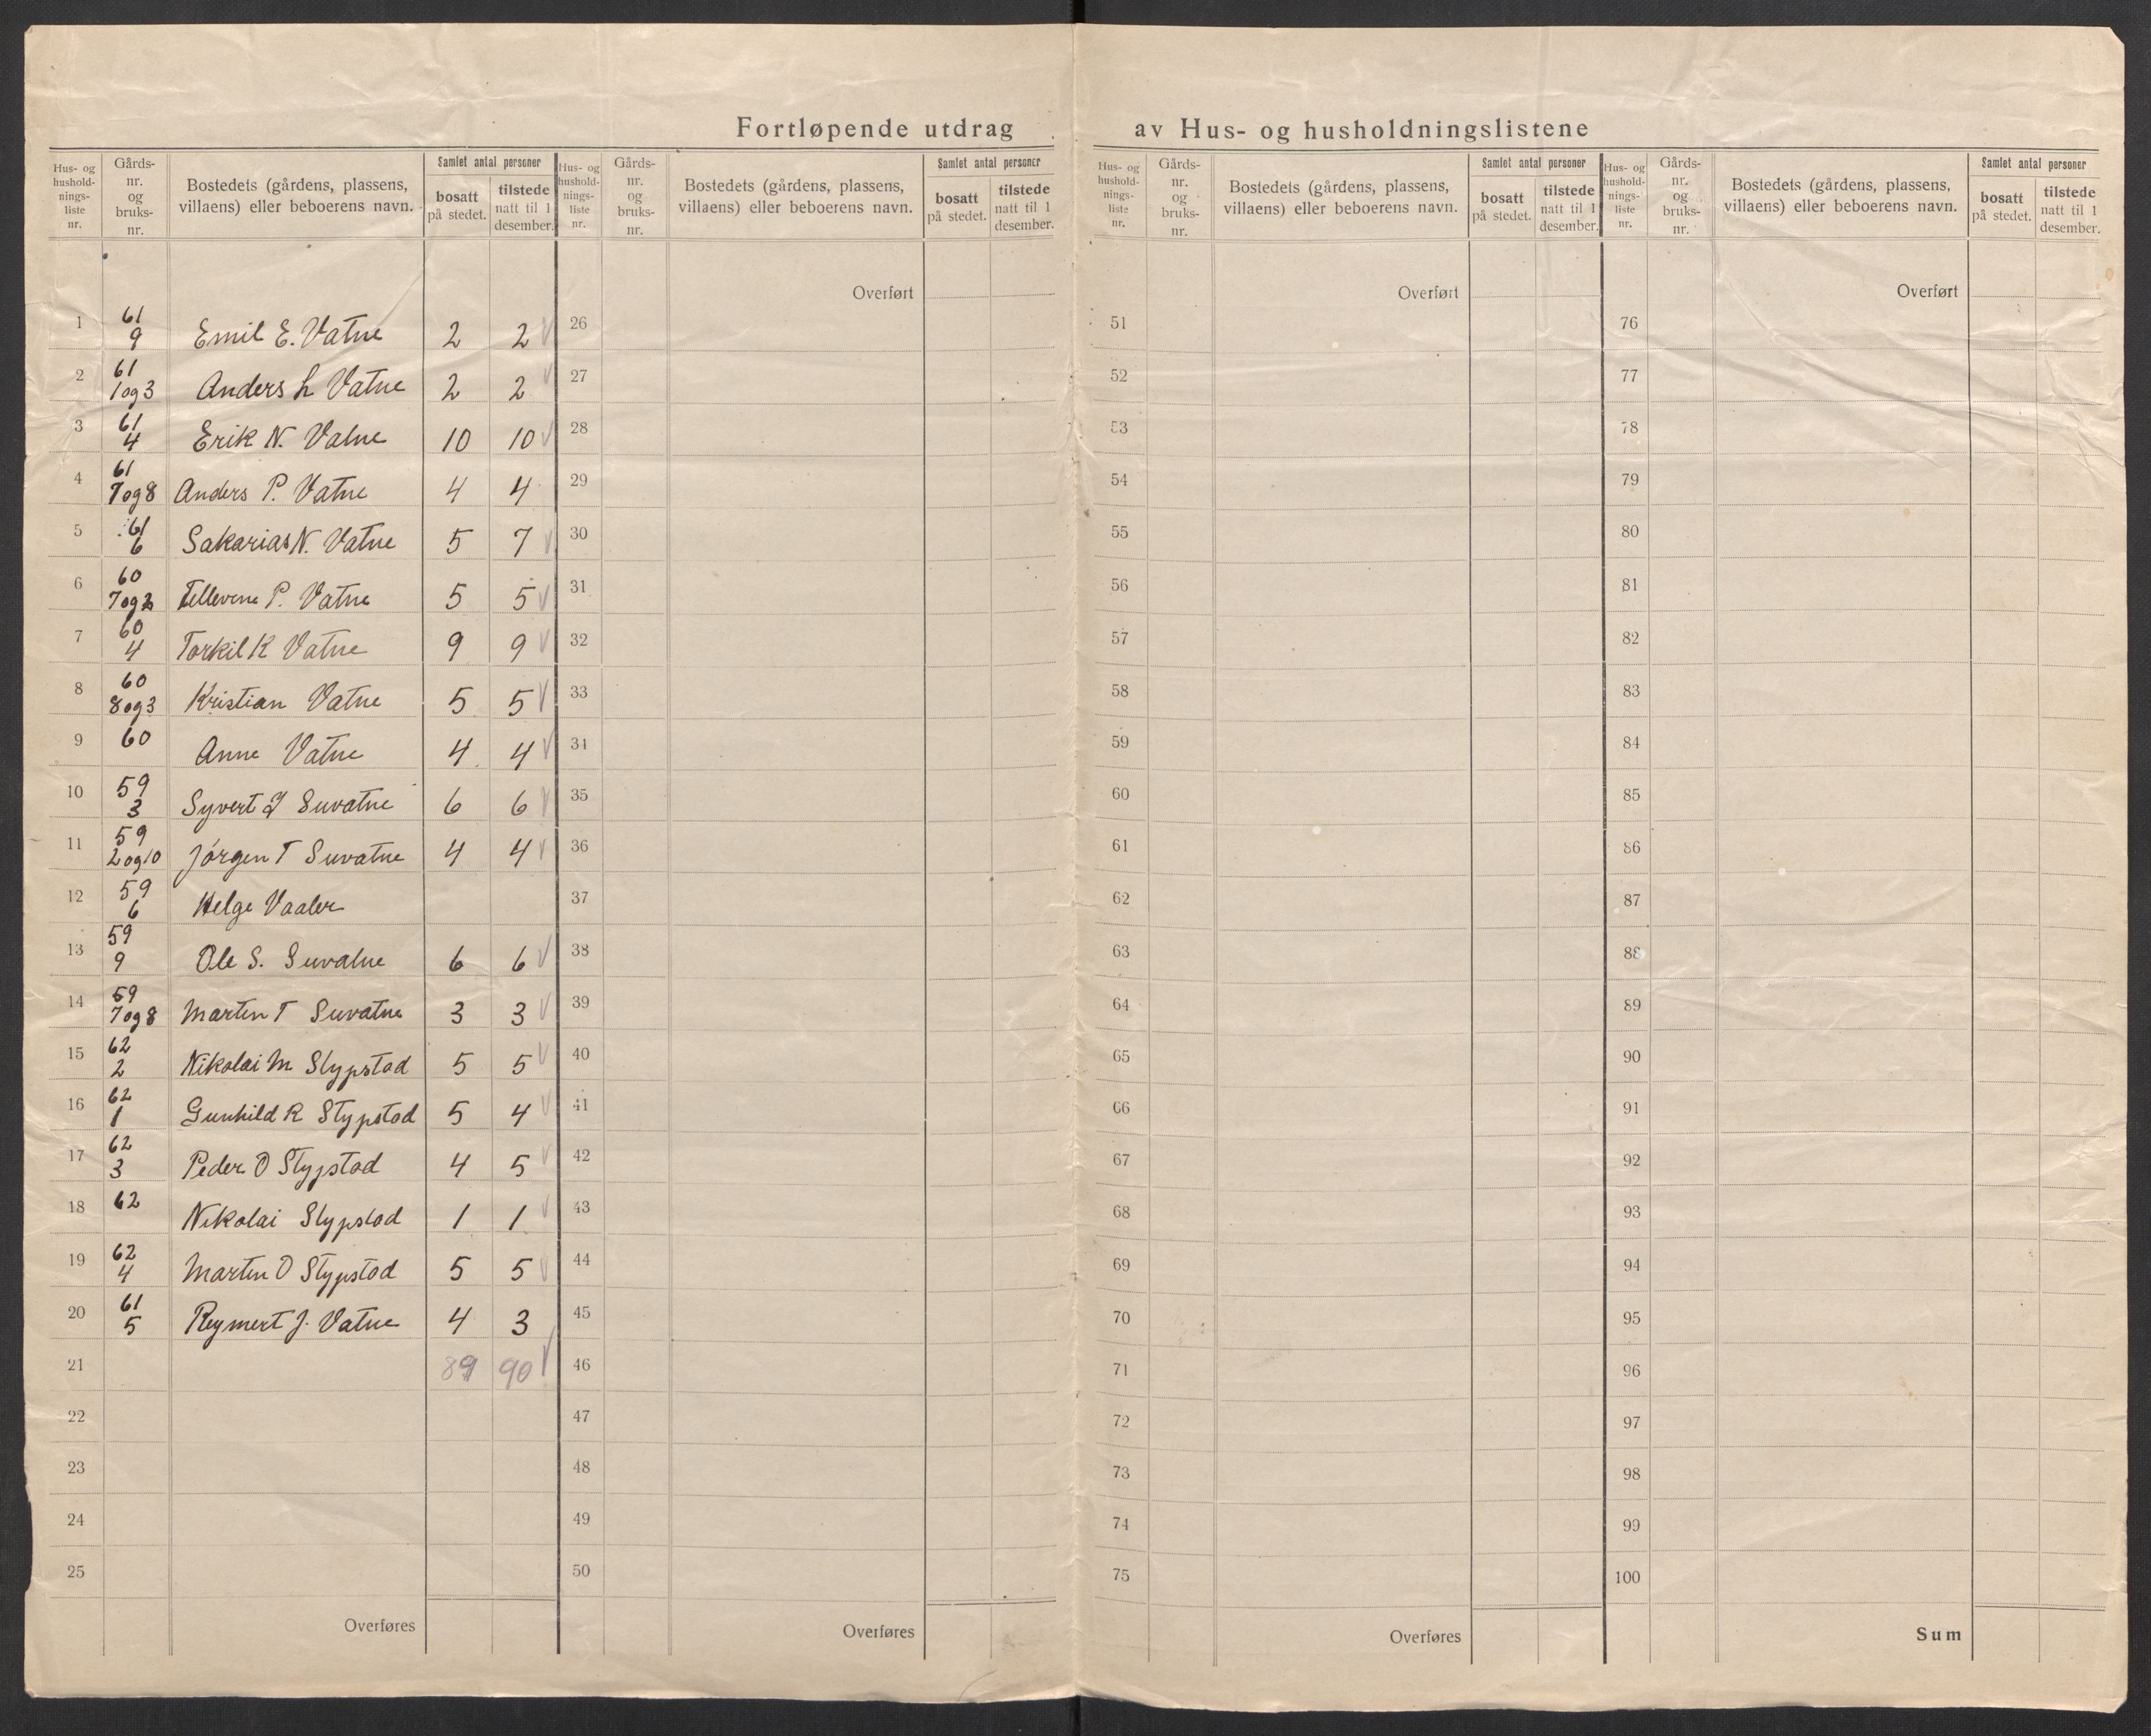 Fortløpende utdrag av Hus- og husholdningslistene
Hus- og husholdnings-liste nr. | Gårds-nr. og bruks-nr. | Bostedets (gårdens, plassens, villaens) eller beboerens navn. | Samlet antal personer | bosatt på stedet. | tilstede natt til 1 desember.
1 | 61 9 | Emil E. Vatne | 2 | 2
2 | 61 1og3 | Anders L Vatne | 2 | 2
3 | 61 4 | Erik N. Vatne | 10 | 10
4 | 61 7og8 | Anders P. Vatne | 4 | 4
5 | 61 6 | Sakarias N. Vatne | 5 | 7
6 | 60 7og2 | Tellevine P. Vatne | 5 | 5
7 | 60 4 | Torkil K Vatne | 9 | 9
8 | 60 8og3 | Kristian Vatne | 5 | 5
9 | 60 | Anne Vatne | 4 | 4
10 | 59 3 | Syvert J Suvatne | 6 | 6
11 | 59 2og10 | Jörgen T Suvatne | 4 | 4
12 | 59 6 | Helge Vaaler
13 | 59 9 | Ole S. Suvatne | 6 | 6
14 | 59 7og8 | Marten T Suvatne | 3 | 3
15 | 62 2 | Nikolai M Stypstad | 5 | 5
16 | 62 1 | Gunhild R Stypstad | 5 | 4
17 | 62 3 | Peder O Stypstad | 4 | 5
18 | 62 | Nikolai Stypstad | 1 | 1
19 | 62 4 | Marten O Stypstad | 5 | 5
20 | 61 5 | Reymert J. Vatne | 4 | 3
21 | 89 | 90
22
23
24
25
Overføres
Hus- og husholdnings-liste nr. | Gårds-nr. og bruks-nr. | Bostedets (gårdens, plassens, villaens) eller beboerens navn. | Samlet antal personer | bosatt på stedet. | tilstede natt til 1 desember.
Overført
26
27
28
29
30
31
32
33
34
35
36
37
38
39
40
41
42
43
44
45
46
47
48
49
50
Overføres
Hus- og husholdnings-liste nr. | Gårds-nr. og bruks-nr. | Bostedets (gårdens, plassens, villaens) eller beboerens navn. | Samlet antal personer | bosatt på stedet. | tilstede natt til 1 desember.
Overført
51
52
53
54
55
56
57
58
59
60
61
62
63
64
65
66
67
68
69
70
71
72
73
74
75
Overføres
Hus- og husholdnings-liste nr. | Gårds-nr. og bruks-nr. | Bostedets (gårdens, plassens, villaens) eller beboerens navn. | Samlet antal personer | bosatt på stedet. | tilstede natt til 1 desember.
Overført
76
77
78
79
80
81
82
83
84
85
86
87
88
89
90
91
92
93
94
95
96
97
98
99
100
Sum